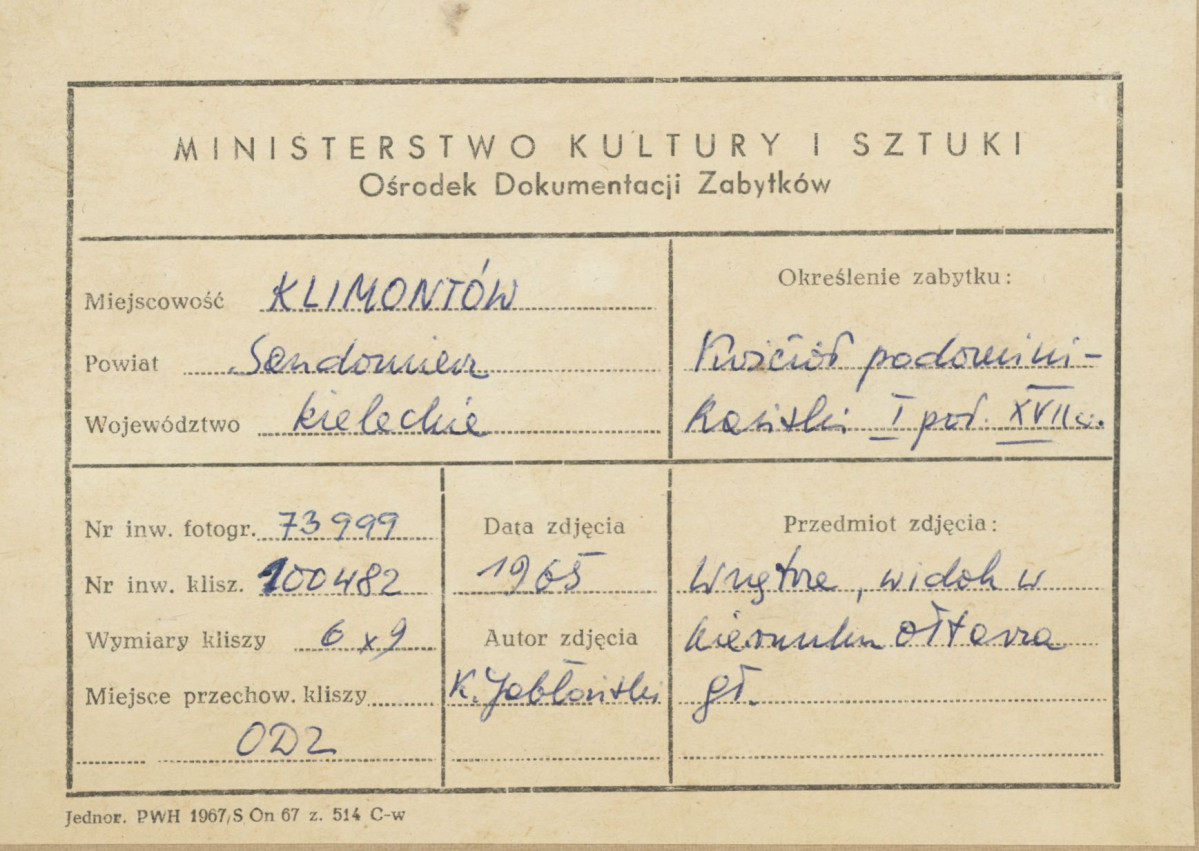 MINISTERSTWO KULTURY I SZTUKI
Ośrodek Dokumentacji Zabytków
Miejscowość KLIMONTÓW
Powiat Sandomierz
Województwo kieleckie
Określenie zabytku:
Kościół podomini-
kański I poł. XVII w.
Nr inw. fotogr. 73999
Nr inw. klisz. 100482
Wymiary kliszy 6 x 9
Miejsce przechow. kliszy
ODZ
Data zdjęcia
1965
Autor zdjęcia
K. Jabłoński
Przedmiot zdjęcia:
Wnętrze, widok w
kierunku ołtarza
gł.
Jednor. PWH 1967/S On 67 z. 514 C-w